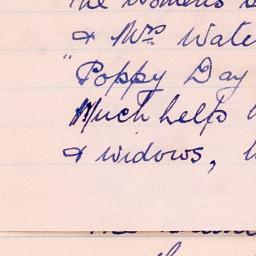 The Women's
& Mrs Wate
"Poppy Day
Much help
& widows,